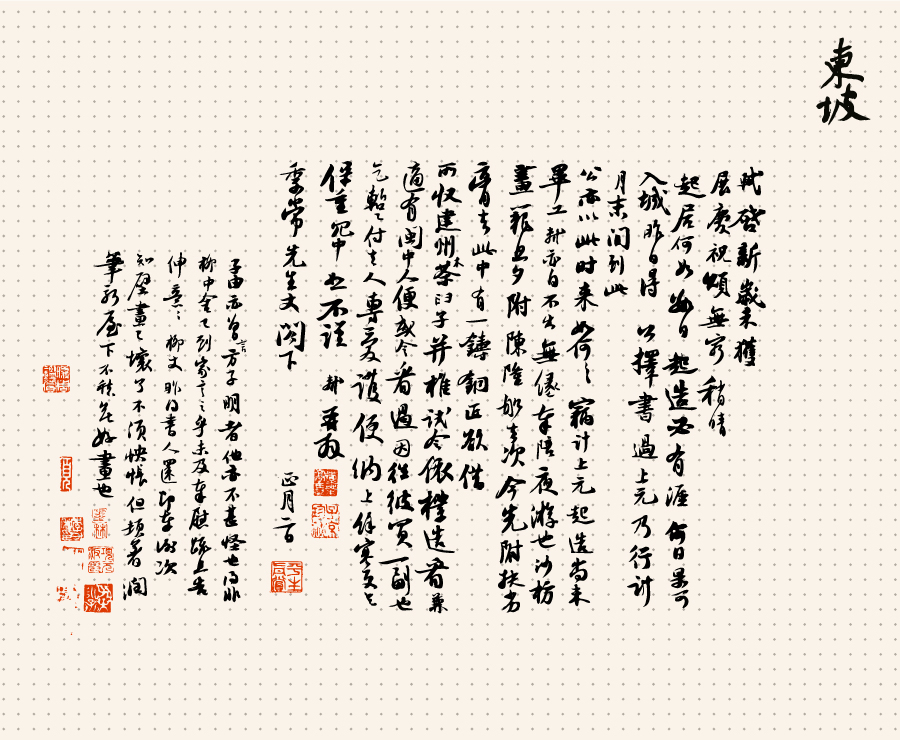 東坡
軾啓新歲未獲
展慶祝頌無窮稍晴
起居何如數日起造必有涯何日果可
入城昨日得公擇書過上元乃行計
月末間到此
公亦以此時來如何々竊計上元起造尚未
畢工軾亦自不出無緣奉陪夜遊也沙枋
畫籠旦夕附陳隆舡去次今先附扶劣
膏去此中有一鑄銅匠欲借
所收建州木茶臼子并椎試令依樣造看兼
適有閩中人便或令看過因往彼買一副也
乞暫付去人專愛護便納上餘寒更乞
保重冗中恕不謹軾再拜
季常先生丈閣下
正月二日
子由亦曾言方子明者他亦不甚怪也得非
柳中舍已到家言之乎未及奉慰疏且告
伸意々柳丈昨得書人還即奉謝次
知壁畫已壞了不須怏悵但頓著潤
筆新屋下不愁無好畫也